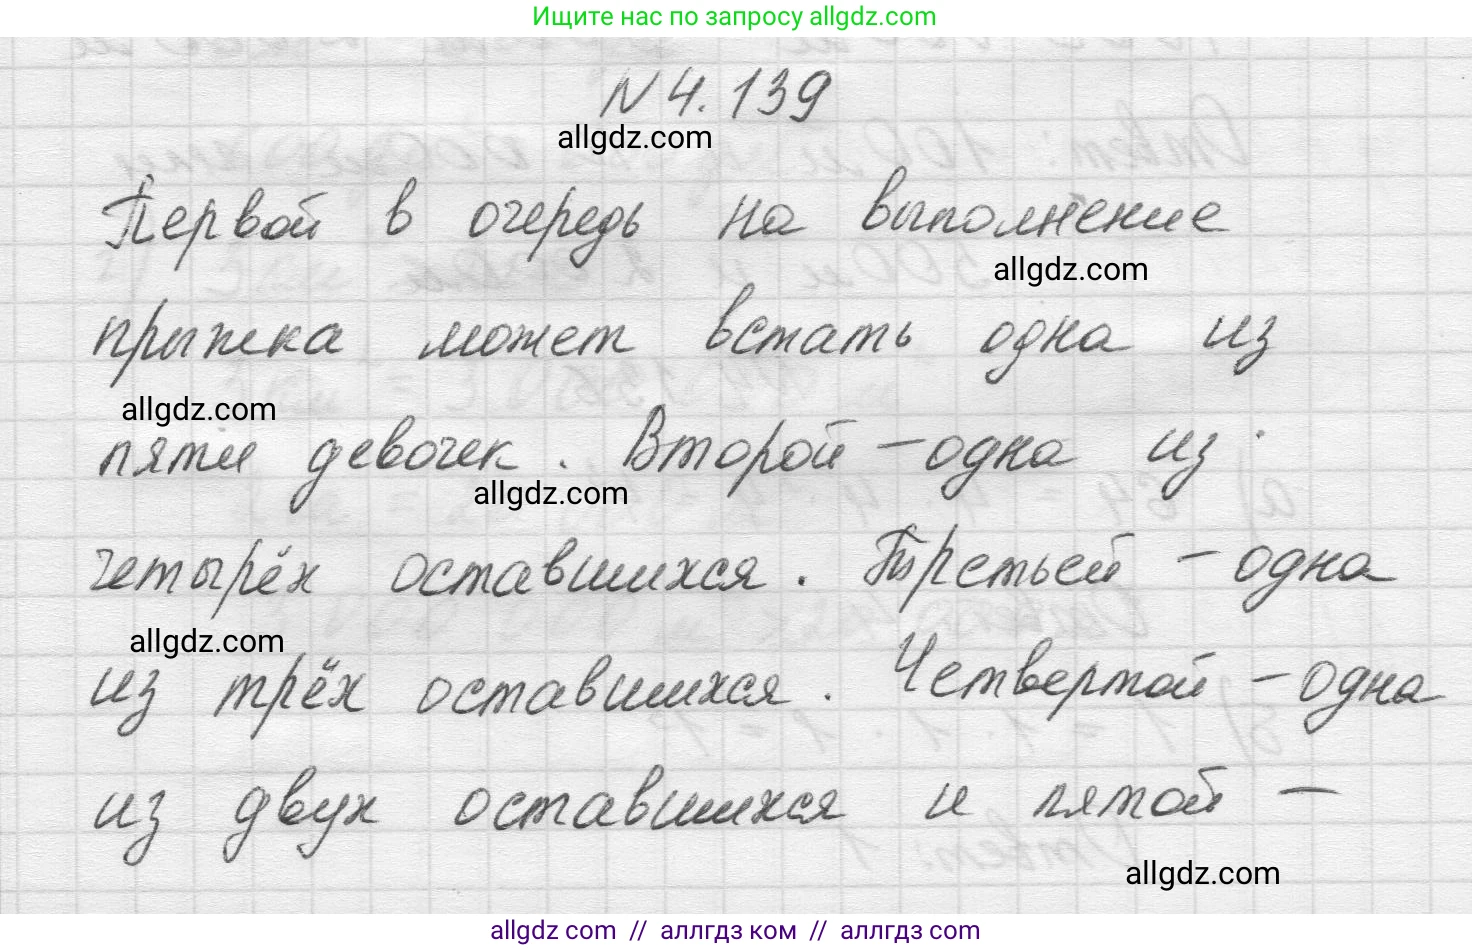 Ищите нас по запросу allgdz.com
N 4.139
allgdz.com
Первой в очередь на выполнение
allgdz.com
прыжка может встать одна из
allgdz.com
пяти девочек. Второй – одна из
allgdz.com
четырёх оставшихся. Третьей – одна
allgdz.com
из трёх оставшихся. Четвертой – одна
из двух оставшихся и пятой –
allgdz.com
allgdz.com // аллгдз ком // аллгдз.com